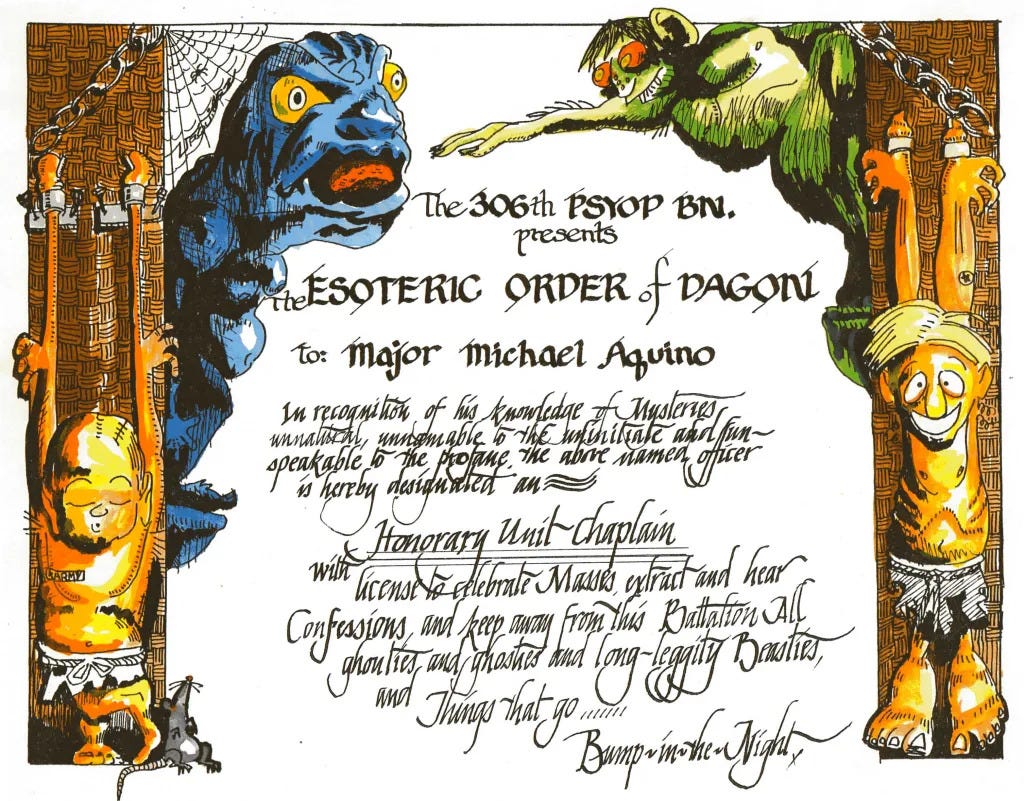 The 306th PSYOP BN.
presents
the ESOTERIC ORDER of DAGON
to: Major Michael Aquino
In recognition of his knowledge of Mysteries
unnatural, unnamable to the uninitiate and un-
speakable to the profane, the above named officer
is hereby designated an
Honorary Unit Chaplain
with license to celebrate Masses, extract and hear
Confessions, and keep away from this Battalion All
ghoulies, and ghosties and long-leggity Beasties,
and Things that go ......
Bump-in-the-Night.
ARMY